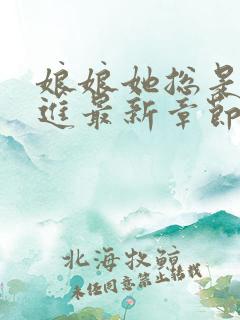 娘娘她总是
进最新章节
北海牧鲸
未经同意禁止转载